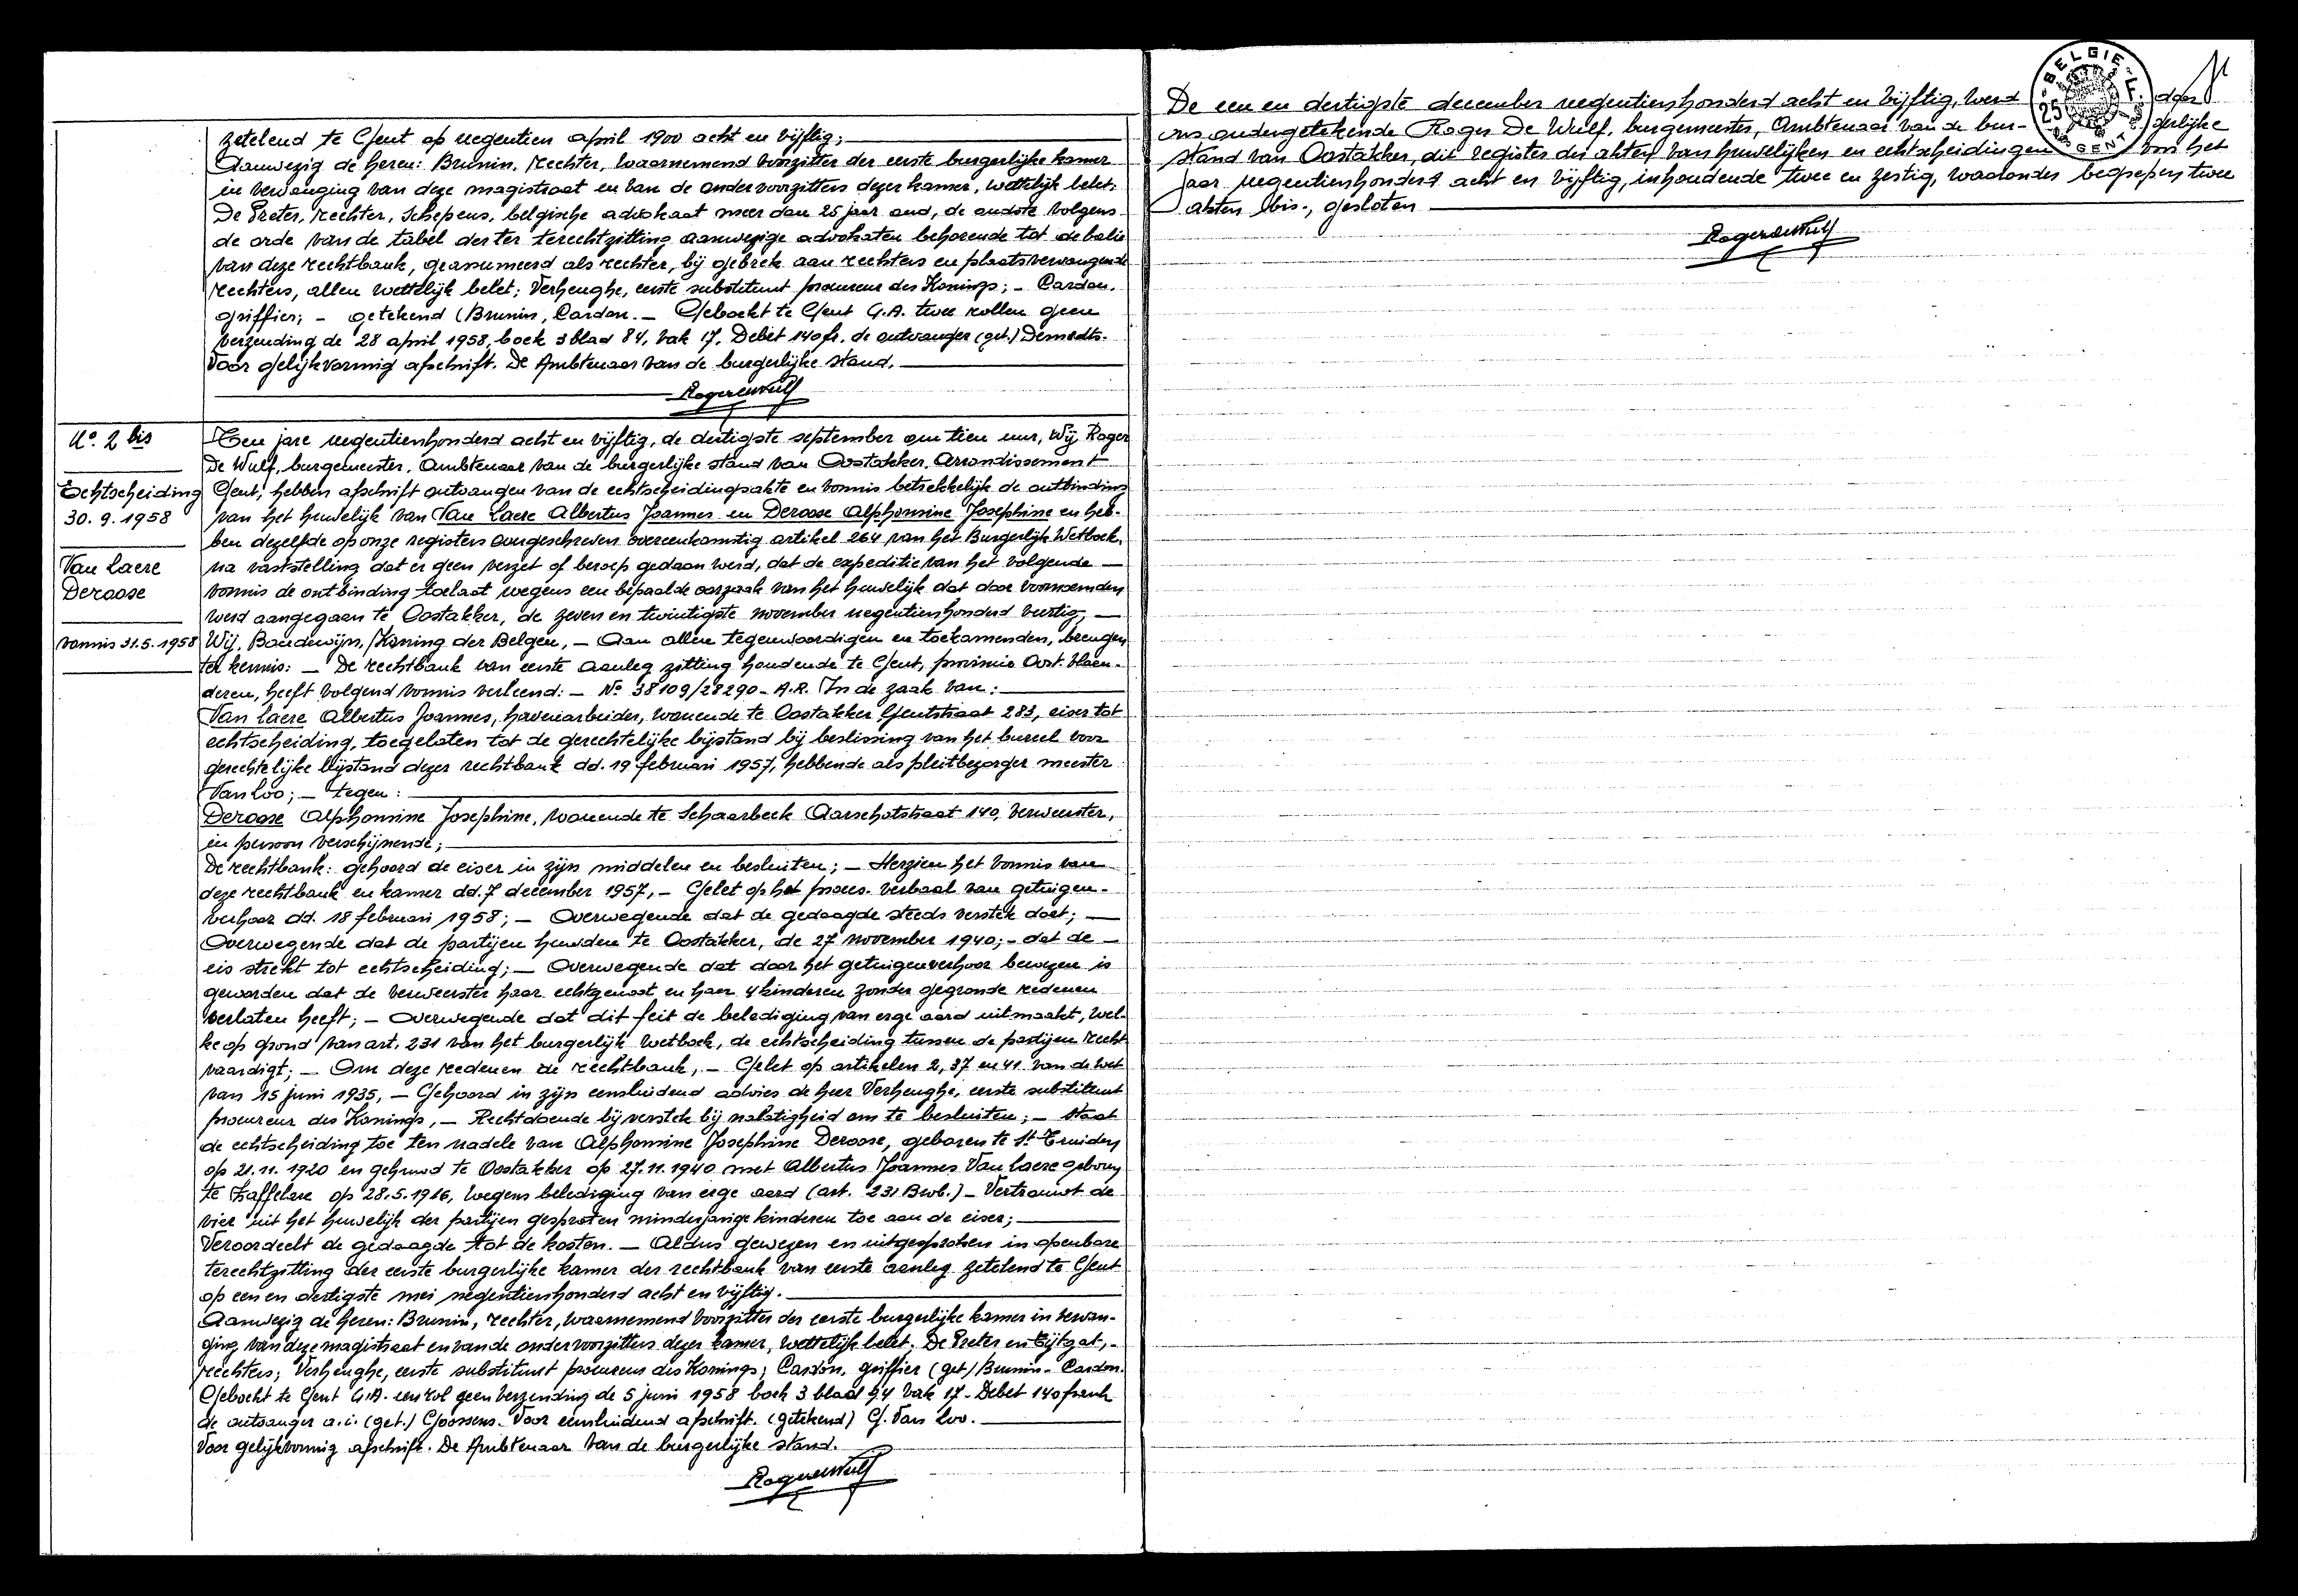 zetelend te Gent op negentien april 1900 acht en vijftig;
Aanwezig de heren: Brunin, rechter, waarnemend voorzitter der eerste burgerlijke kamer
in vervanging van deze magistraat en van de ondervoorzitters dezer kamer, wettelijk belet;
De Preter, rechter, Schepens, belgische advokaat meer dan 25 jaar oud, de oudste volgens
de orde van de tabel der ter terechtzitting aanwezige advokaten behorende tot de balie
van deze rechtbank, geassumeerd als rechter, bij gebrek aan rechters en plaatsvervangende
rechters, allen wettelijk belet; Verhenghe, eerste substituut procureur des Konings; - Cardon,
griffier; - getekend (Brunin, Cardon. - Geboekt te Gent G.A. twee rollen geen
verzending de 28 april 1958, boek 3 blad 84, vak 17. Debet 140 fr. de ontvanger (get.) Demedts.
Voor gelijkvormig afschrift. De Ambtenaar van de burgerlijke stand.
Rogerdewulf
N° 2 bis
Echtscheiding
30.9.1958
Van Laere
Deroose
vonnis 31.5.1958
Ten jare negentienhonderd acht en vijftig, de dertigste september om tien uur, Wij Roger
De Wulf, burgemeester, Ambtenaar van de burgerlijke stand van Oostakker, Arrondissement
Gent, hebben afschrift ontvangen van de echtscheidingsakte en vonnis betrekkelijk de ontbinding
van het huwelijk van Van Laere Albertus Joannes en Deroose Alphonsine Josephine en heb-
ben dezelfde op onze registers overgeschreven overeenkomstig artikel 264 van het Burgerlijk Wetboek,
na vaststelling dat er geen verzet of beroep gedaan werd, dat de expeditie van het volgende
vonnis de ontbinding toelaat wegens een bepaalde oorzaak van het huwelijk dat door voornoemden
werd aangegaan te Oostakker, de zeven en twintigste november negentienhonderd veertig,
Wij, Boudewijn, Koning der Belgen, - Aan allen tegenwoordigen en toekomenden, brengen
ter kennis: - De rechtbank van eerste aanleg zitting houdende te Gent, provincie Oost-Vlaan-
deren, heeft volgend vonnis verleend: - N° 38109/28290 - A.R. In de zaak van:
Van Laere Albertus Joannes, havenarbeider, wonende te Oostakker Gentstraat 283, eiser tot
echtscheiding, toegelaten tot de gerechtelijke bijstand bij beslissing van het bureel voor
gerechtelijke bijstand dezer rechtbank dd. 19 februari 1957, hebbende als pleitbezorger meester
Van Loo; - tegen:
Deroose Alphonsine Josephine, wonende te Schaarbeek Aarschotstraat 140, verweerster,
in persoon verschijnende;
De rechtbank: gehoord de eiser in zijn middelen en besluiten; - Herzien het vonnis van
deze rechtbank en kamer dd. 7 december 1957, - Gelet op het proces-verbaal van getuigen-
verhoor dd. 18 februari 1958; - Overwegende dat de gedaagde steeds verstek doet;
Overwegende dat de partijen huwden te Oostakker, de 27 november 1940; - dat de
eis strekt tot echtscheiding; - Overwegende dat door het getuigenverhoor bewezen is
geworden dat de verweerster haar echtgenoot en haar 4 kinderen zonder gegronde redenen
verlaten heeft; - Overwegende dat dit feit de belediging van erge aard uitmaakt, wel-
ke op grond van art. 231 van het burgerlijk wetboek, de echtscheiding tussen de partijen recht
vaardigt; - Om deze redenen de rechtbank, - Gelet op artikelen 2, 37 en 41 van de wet
van 15 juni 1935, - Gehoord in zijn eensluidend advies de heer Verhenghe, eerste substituut
procureur des Konings, - Rechtdoende bij verstek bij nalatigheid om te besluiten; - Staat
de echtscheiding toe ten nadele van Alphonsine Josephine Deroose, geboren te St Truiden
op 21.11.1920 en gehuwd te Oostakker op 27.11.1940 met Albertus Joannes Van Laere geboren
te Zaffelare op 28.5.1916, wegens belediging van erge aard (art. 231 Bwb.) - Vertrouwt de
vier uit het huwelijk der partijen gesproten minderjarige kinderen toe aan de eiser;
Veroordeelt de gedaagde tot de kosten. - Aldus gewezen en uitgesproken in openbare
terechtzitting der eerste burgerlijke kamer der rechtbank van eerste aanleg zetelend te Gent
op een en dertigste mei negentienhonderd acht en vijftig.
Aanwezig de heren: Brunin, rechter, waarnemend voorzitter der eerste burgerlijke kamer in vervan-
ging van deze magistraat en van de ondervoorzitters dezer kamer, wettelijk belet; De Preter en Eijtgat,-
rechters; Verhenghe, eerste substituut procureur des Konings; Cardon, griffier (get) Brunin - Cardon.
Geboekt te Gent G.A. een rol geen verzending de 5 juni 1958 boek 3 blad 94 vak 17 - Debet 140 frank
de ontvanger a.i. (get.) Goossens. Voor eensluidend afschrift. (getekend) G. Van Loo.
Voor gelijkvormig afschrift. De Ambtenaar van de burgerlijke stand.
Rogerdewulf
De een en dertigste december negentienhonderd acht en vijftig, werd door
ons ondergetekende Roger De Wulf, burgemeester, Ambtenaar van de bur- gerlijke
stand van Oostakker, dit register der akten van huwelijken en echtscheidingen van het
jaar negentienhonderd acht en vijftig, inhoudende twee en zestig, waaronder begrepen twee
akten bis-, gesloten
Rogerdewulf
BELGIE
25 F.
GENT